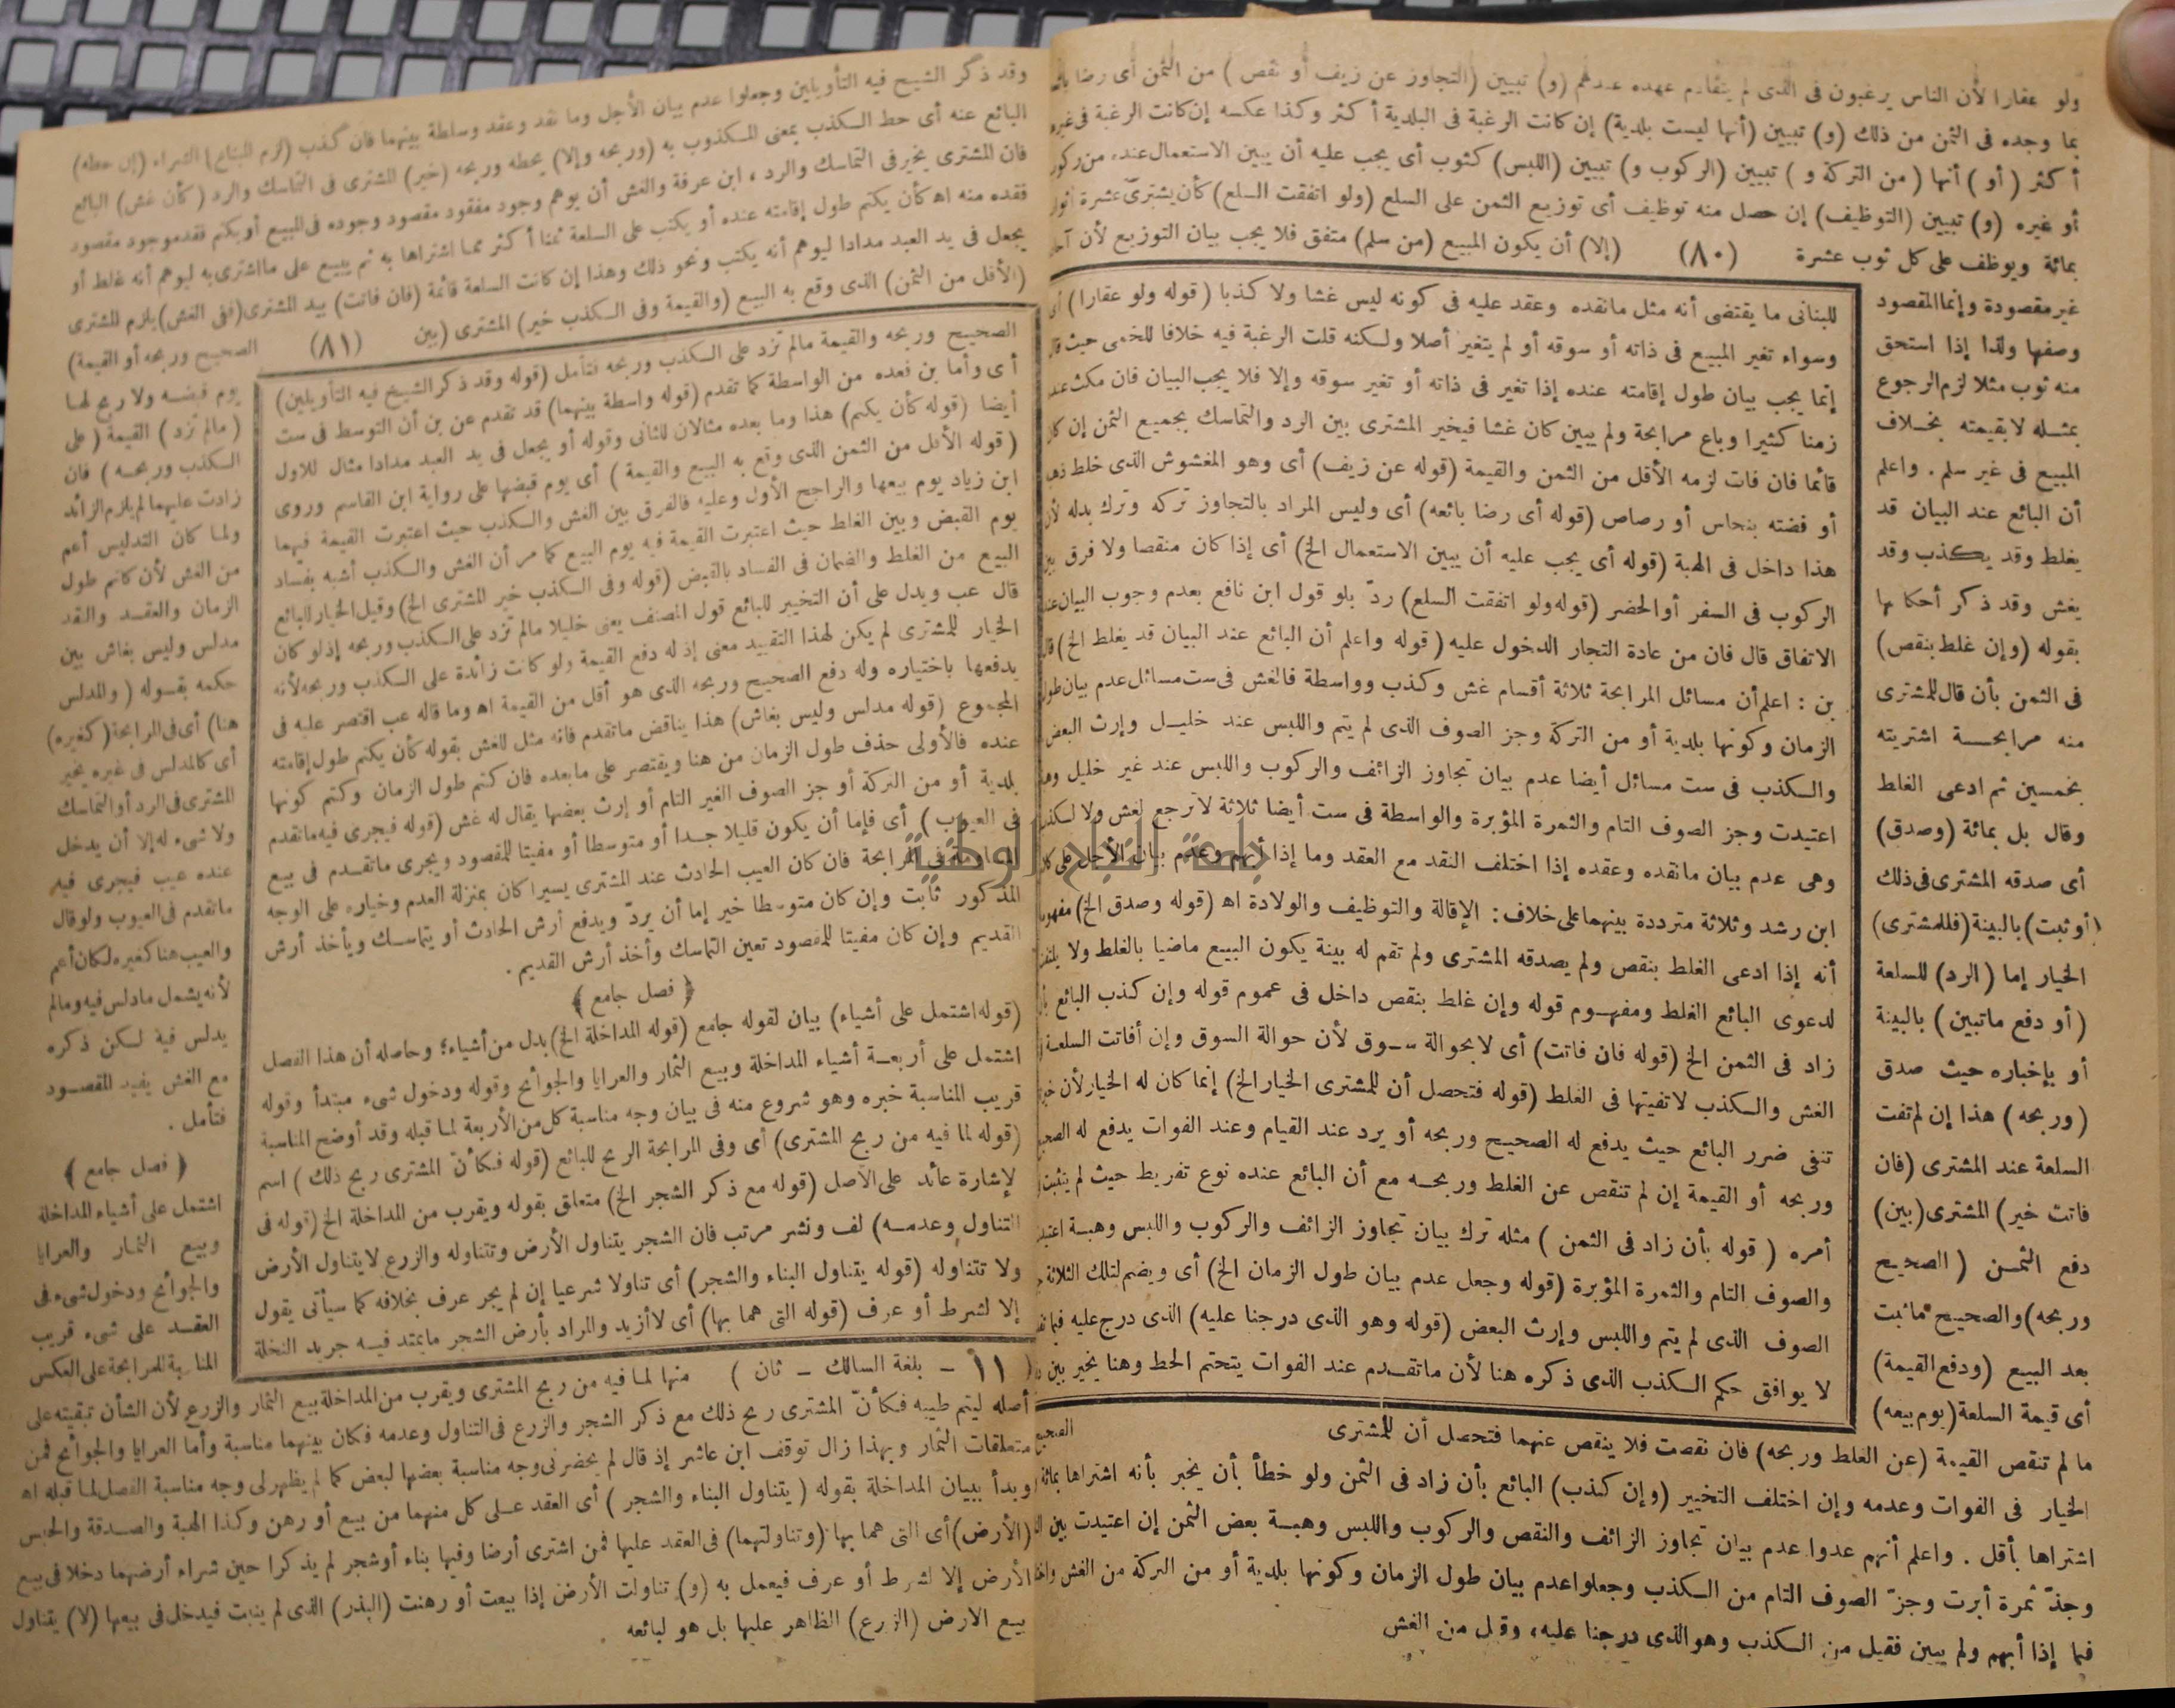 ولو عقارا لأن الناس يرغبون فى الذى لم يتقادم عهده عندهم (و) تبيين (التجاوز عن زيف أو نقص) من الثمن أى رضا بائعه
بما وجده فى الثمن من ذلك (و) تبيين (أنها ليست بلدية) إن كانت الرغبة فى البلدية أكثر وكذا عكسه إن كانت الرغبة فى غيرها
أكثر (أو) أنها (من التركة و) تبيين (الركوب و) تبيين (اللبس) كثوب أى يجب عليه أن يبين الاستعمال عنده من ركوب
أو غيره (و) تبيين (التوظيف) إن حصل منه توظيف أى توزيع الثمن على السلع (ولو اتفقت السلع) كأن يشترى عشرة أثواب
بمائة ويوظف على كل ثوب عشرة (٨٠) (إلا) أن يكون المبيع (من سلم) متفق فلا يجب بيان التوزيع لأن
غير مقصودة وإنما المقصود
وصفها ولذا إذا استحق
منه ثوب مثلا لزم الرجوع
بمثله لا بقيمته بخلاف
المبيع فى غير سلم . واعلم
أن البائع عند البيان قد
يغلط وقد يكذب وقد
يغش وقد ذكر أحكامها
بقوله (وإن غلط بنقص)
فى الثمن بأن قال للمشترى
منه مرابحة اشتريته
بخمسين ثم ادعى الغلط
وقال بل بمائة (وصدق)
أى صدقه المشترى فى ذلك
(أو ثبت) بالبينة (فللمشترى)
الخيار إما (الرد) للسلعة
(أو دفع ماتبين) بالبينة
أو بإخباره حيث صدق
(وربحه) هذا إن لم تفت
السلعة عند المشترى (فان
فاتت خير) المشترى (بين)
دفع الثمن (الصحيح
وربحه) والصحيح ماثبت
بعد البيع (ودفع القيمة)
أى قيمة السلعة (يوم بيعه)
للبنانى ما يقتضى أنه مثل مانقده وعقد عليه فى كونه ليس غشا ولا كذبا (قوله ولو عقارا) أى
وسواء تغير المبيع فى ذاته أو سوقه أو لم يتغير أصلا ولكنه قلت الرغبة فيه خلافا للخمى حيث قال
إنما يجب بيان طول إقامته عنده إذا تغير فى ذاته أو تغير سوقه وإلا فلا يجب البيان فان مكث عنده
زمنا كثيرا وباع مرابحة ولم يبين كان غشا فيخير المشترى بين الرد والتماسك بجميع الثمن إن كان
قائما فان فات لزمه الأقل من الثمن والقيمة (قوله عن زيف) أى وهو المغشوش الذى خلط ذهبه
أو فضته بنحاس أو رصاص (قوله أى رضا بائعه) أى وليس المراد بالتجاوز تركه وترك بدله لأن
هذا داخل فى الهبة (قوله أى يجب عليه أن يبين الاستعمال الخ) أى إذا كان منقصا ولا فرق بين
الركوب فى السفر أو الحضر (قوله ولو اتفقت السلع) ردّ بلو قول ابن نافع بعدم وجوب البيان عند
الاتفاق قال فان من عادة التجار الدخول عليه (قوله واعلم أن البائع عند البيان قد يغلط الخ) قال
بن : اعلم أن مسائل المرابحة ثلاثة أقسام غش وكذب وواسطة فالغش فى ست مسائل عدم بيان طول
الزمان وكونها بلدية أو من التركة وجز الصوف الذى لم يتم واللبس عند خليل وإرث البعض
والكذب فى ست مسائل أيضا عدم بيان تجاوز الزائف والركوب واللبس عند غير خليل
اعتيدت وجز الصوف التام والثمرة المؤبرة والواسطة فى ست أيضا ثلاثة لا ترجع لغش ولا لكذب
وهى عدم بيان مانقده وعقده إذا اختلف النقد مع العقد وما إذا أبهم وعدم بيان الأجل على
ابن رشد وثلاثة مترددة بينهما على خلاف : الإقالة والتوظيف والولادة اه (قوله وصدق الخ)
أنه إذا ادعى الغلط بنقص ولم يصدقه المشترى ولم تقم له بينة يكون البيع ماضيا بالغلط ولا يلتفت
لدعوى البائع الغلط ومفهوم قوله وإن غلط بنقص داخل فى عموم قوله وإن كذب البائع
زاد فى الثمن الخ (قوله فان فاتت) أى لا بحوالة سوق لأن حوالة السوق وإن أفاتت السلعة
الغش والكذب لا تفيتها فى الغلط (قوله فتحصل أن للمشترى الخيار الخ) إنما كان له الخيار لأن
تنفى ضرر البائع حيث يدفع له الصحيح وربحه أو يرد عند القيام وعند الفوات يدفع له الصحيح
وربحه أو القيمة إن لم تنقص عن الغلط وربحه مع أن البائع عنده نوع تفريط حيث لم يتثبت
أمره (قوله بأن زاد فى الثمن) مثله ترك بيان تجاوز الزائف والركوب واللبس وهبة اعتيدت
والصوف التام والثمرة المؤبرة (قوله وجعل عدم بيان طول الزمان الخ) أى ويضم لتلك الثلاثة
الصوف الذى لم يتم واللبس وإرث البعض (قوله وهو الذى درجنا عليه) الذى درج عليه
لا يوافق حكم الكذب الذى ذكره هنا لأن ماتقدم عند الفوات يتحتم الحط وهنا يخير بين
ما لم تنقص القيمة (عن الغلط وربحه) فان نقصت فلا ينقص عنهما فتحصل أن للمشترى
الخيار فى الفوات وعدمه وإن اختلف التخيير (وإن كذب) البائع بأن زاد فى الثمن ولو خطأ بأن يخبر بأنه اشتراها بمائة
اشتراها بأقل . واعلم أنهم عدوا عدم بيان تجاوز الزائف والنقص والركوب واللبس وهبة بعض الثمن إن اعتيدت بين
وجذّ ثمرة أبرت وجزّ الصوف التام من الكذب وجعلوا عدم بيان طول الزمان وكونها بلدية أو من التركة من الغش
فيما إذا أبهم ولم يبين فقيل من الكذب وهو الذى درجنا عليه، وقيل من الغش
وقد ذكر الشيخ فيه التأويلين وجعلوا عدم بيان الأجل وما نقد وعقد وسلطة بينهما فان كذب (لزم المبتاع) الشراء (إن حطه)
البائع عنه أى حط الكذب بمعنى المكذوب به (وربحه وإلا) يحطه وربحه (خير) المشترى فى التماسك والرد (كأن غش) البائع
فان المشترى يخير فى التماسك والرد ، ابن عرفة والغش أن يوهم وجود مفقود مقصود وجوده فى المبيع أو يكتم فقد موجود مقصود
فقده منه اه كأن يكتم طول إقامته عنده أو يكتب على السلعة ثمنا أكثر مما اشتراها به ثم يبيع على ما اشترى به ليوهم أنه غلط أو
يجعل فى يد العبد مدادا ليوهم أنه يكتب ونحو ذلك وهذا إن كانت السلعة قائمة (فان فاتت) بيد المشترى (ففى الغش) يلزم المشترى
(الأقل من الثمن) الذى وقع به البيع (والقيمة وفى الكذب خير) المشترى (بين (٨١) الصحيح وربحه أو القيمة)
يوم قبضه ولا ربح لها
(مالم تزد) القيمة (على
الكذب وربحه) فان
زادت عليهما لم يلزم الزائد
ولما كان التدليس أعم
من الغش لأن كاتم طول
الزمان والعقد والنقد
مدلس وليس بغاش بين
حكمه بقوله (والمدلس
هنا) أى فى المرابحة (كغيره)
أى كالمدلس فى غيره يخير
المشترى فى الرد أو التماسك
ولا شىء له إلا أن يدخل
عنده عيب فيجرى فيه
ماتقدم فى العيوب ولو قال
والعيب هنا كغيره لكان أعم
لأنه يشمل ما دلس فيه وما لم
يدلس فيه لكن ذكره
مع الغش يفيد المقصود
فتأمل .
﴿ فصل جامع ﴾
اشتمل على أشياء المداخلة
وبيع الثمار والعرايا
والجوائح ودخول شىء فى
العقد على شىء قريب
المناسبة للمرابحة على العكس
الصحيح وربحه والقيمة مالم تزد على الكذب وربحه فتأمل (قوله وقد ذكر الشيخ فيه التأويلين)
أى وأما بن فعده من الواسطة كما تقدم (قوله واسطة بينهما) قد تقدم عن بن أن التوسط فى ست
أيضا (قوله كأن يكتم) هذا وما بعده مثالان للثانى وقوله أو يجعل فى يد العبد مدادا مثال للاول
(قوله الأقل من الثمن الذى وقع به البيع والقيمة) أى يوم قبضها على رواية ابن القاسم وروى
ابن زياد يوم بيعها والراجح الأول وعليه فالفرق بين الغش والكذب حيث اعتبرت القيمة فيهما
يوم القبض وبين الغلط حيث اعتبرت القيمة فيه يوم البيع كما مر أن الغش والكذب أشبه بفساد
البيع من الغلط والضمان فى الفساد بالقبض (قوله وفى الكذب خير المشترى الخ) وقيل الخيار للبائع
قال عب ويدل على أن التخيير للبائع قول المصنف يعنى خليلا مالم تزد على الكذب وربحه إذ لو كان
الخيار للمشترى لم يكن لهذا التقييد معنى إذ له دفع القيمة ولو كانت زائدة على الكذب وربحه لأنه
يدفعها باختياره وله دفع الصحيح وربحه الذى هو أقل من القيمة اه وما قاله عب اقتصر عليه فى
المجموع (قوله مدلس وليس بغاش) هذا يناقض ماتقدم فانه مثل للغش بقوله كأن يكتم طول إقامته
عنده فالأولى حذف طول الزمان من هنا ويقتصر على مابعده فان كتم طول الزمان وكتم كونها
بلدية أو من التركة أو جز الصوف الغير التام أو إرث بعضها يقال له غش (قوله فيجرى فيه ماتقدم
فى العيوب) أى فإما أن يكون قليلا جدا أو متوسطا أو مفيتا للمقصود ويجرى ماتقدم فى بيع
المرابحة فان كان العيب الحادث عند المشترى يسيرا كان بمنزلة العدم وخياره على الوجه
المذكور ثابت وإن كان متوسطا خير إما أن يردّ ويدفع أرش الحادث أو يتماسك ويأخذ أرش
القديم وإن كان مفيتا للمقصود تعين التماسك وأخذ أرش القديم .
﴿ فصل جامع ﴾
(قوله اشتمل على أشياء) بيان لقوله جامع (قوله المداخلة الخ) بدل من أشياء؛ وحاصله أن هذا الفصل
اشتمل على أربعة أشياء المداخلة وبيع الثمار والعرايا والجوائح وقوله ودخول شىء مبتدأ وقوله
قريب المناسبة خبره وهو شروع منه فى بيان وجه مناسبة كل من الأربعة لما قبله وقد أوضح المناسبة
(قوله لما فيه من ربح المشترى) أى وفى المرابحة الربح للبائع (قوله فكأنّ المشترى ربح ذلك) اسم
الإشارة عائد على الأصل (قوله مع ذكر الشجر الخ) متعلق بقوله ويقرب من المداخلة الخ (قوله فى
التناول وعدمه) لف ونشر مرتب فان الشجر يتناول الأرض وتتناوله والزرع لا يتناول الأرض
ولا تتناوله (قوله يتناول البناء والشجر) أى تناولا شرعيا إن لم يجر عرف بخلافه كما سيأتى يقول
إلا لشرط أو عرف (قوله التى هما بها) أى لا أزيد والمراد بأرض الشجر مايمتد فيه جريد النخلة
(١١ - بلغة السالك - ثان) منها لما فيه من ربح المشترى ويقرب من المداخلة بيع الثمار والزرع لأن الشأن تبقيته على
أصله ليتم طيبه فكأنّ المشترى ربح ذلك مع ذكر الشجر والزرع فى التناول وعدمه فكان بينهما مناسبة وأما العرايا والجوائح فمن
متعلقات الثمار وبهذا زال توقف ابن عاشر إذ قال لم يحضرنى وجه مناسبة بعضها لبعض كما لم يظهر لى وجه مناسبة الفصل لما قبله اه
وبدأ ببيان المداخلة بقوله (يتناول البناء والشجر) أى العقد على كل منهما من بيع أو رهن وكذا الهبة والصدقة والحبس
(الأرض) أى التى هما بها (وتناولتهما) فى العقد عليها فمن اشترى أرضا وفيها بناء أو شجر لم يذكرا حين شراء أرضهما دخلا فى بيع
الأرض إلا لشرط أو عرف فيعمل به (و) تناولت الأرض إذا بيعت أو رهنت (البذر) الذى لم ينبت فيدخل فى بيعها (لا) يتناول
بيع الارض (الزرع) الظاهر عليها بل هو لبائعه
جامعة النجاح الوطنية